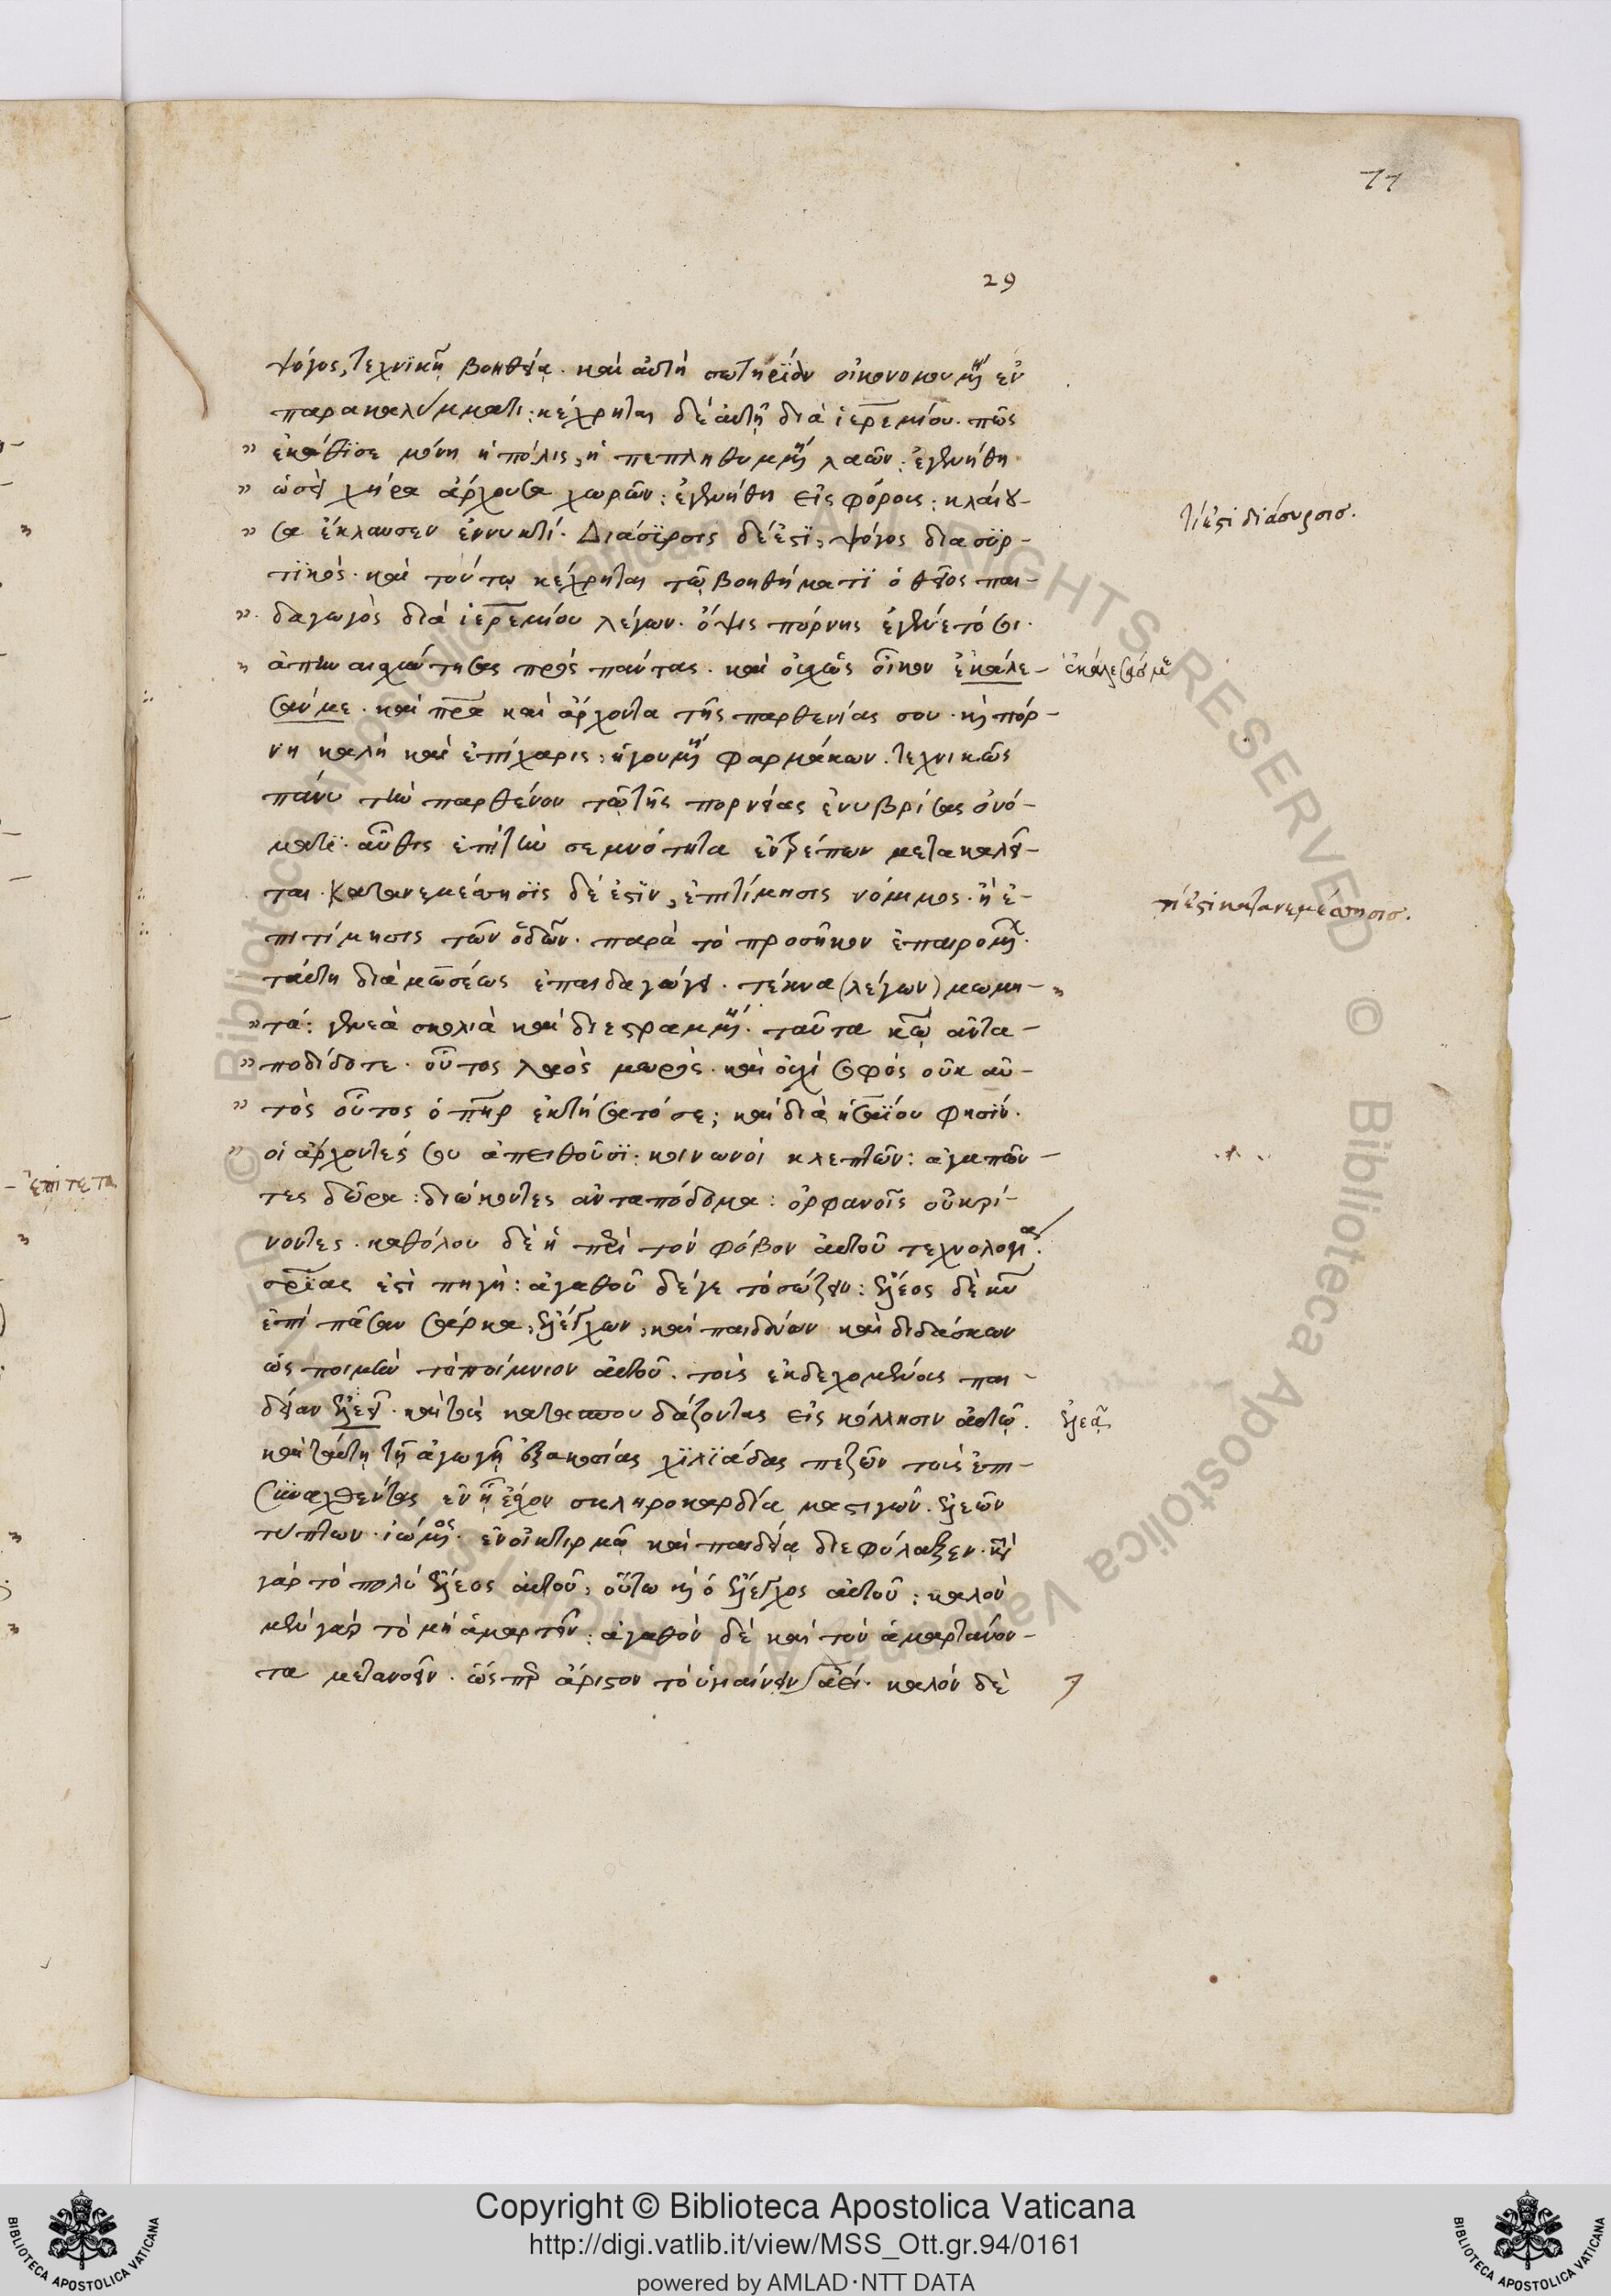 77
29
ψόγος, τεχνϊκῆ βοηθεία. καὶ αὐτὴ σωτηρίον οἰκονομουμένη ἐν
παρακαλύμματι: κέχρηται δὲ αὐτῆ διὰ ἱερεμίου. πῶς
" ἐκάθϊσε μόνη ἡ πόλις, ἡ πεπληθυμμένη λαῶν: ἐγενήθη
" ὡσεὶ χήρα ἄρχουσα χωρῶν: ἐγενήθη εἰς φόρους: κλαίου-
" σα ἔκλαυσεν ἐννυκτί. Διάσϋρσις δέ ἐστϊ, ψόγος διασϋρ-
τϊκός. καὶ τούτω κέχρηται τῶ βοηθήματϊ ὁ θεῖος παι-
" δαγωγὸς διὰ ἱερεμίου λέγων. ὄψις πόρνης ἐγένετό σοι.
" ἀπηναισχύντησας πρὸς πάντας. καὶ οὐχ ὡς οἶκον ἐκάλε-
σάν με. καὶ πρα καὶ ἄρχοντα τῆς παρθενίας σου. κὶ πόρ-
νη καλὴ καὶ ἐπίχαρις, ἡγουμένη φαρμάκων. τεχνικῶς
πάνυ τὴν παρθένον τῶ τῆς πορνείας ἐνυβρίσας ὀνό-
ματϊ. αὖθις ἐπὶ τὴν σεμνότητα ἐντρέπων μετακαλεῖ-
ται. κατανεμέσησϊς δέ ἐστϊν, ἐπιτίμησις νόμιμος. ἢ ἐ-
πιτίμησις τῶν ὁδῶν. παρὰ τὸ προσῆκον ἐπαιρομένων.
ταύτη διὰ μωσέως ἐπαιδαγώγει. τέκνα (λέγων) μωμη-
" τά: γενεὰ σκολιὰ καὶ διεστραμμένη. ταῦτα κω ἀντα-
" ποδίδοτε. οὗτος λαὸς μωρὸς. καὶ οὐχὶ σοφός οὐκ αὐ-
" τὸς οὗτος ὁ πηρ ἐκτήσατό σε; καὶ διὰ ἡσαΐου φησϊν.
" οἱ ἄρχοντές σου ἀπειθοῦσϊ: κοινωνοὶ κλεπτῶν: ἀγαπῶν-
τες δῶρα: διώκοντες ἀνταπόδομα: ὀρφανοῖς οὐ κρί-
νοντες. καθόλου δὲ ἡ περὶ τὸν φόβον αὐτοῦ τεχνολογία.
σρϊας ἐστὶ πηγή: ἀγαθοῦ δέ γε τὸ σώζειν: ἔλεος δὲ κυ
ἐπὶ πᾶσαν σάρκα, ἐλέγχων, καὶ παιδεύων καὶ διδάσκων
ὡς ποιμὴν τὸ ποίμνιον αὐτοῦ. τοὺς ἐκδεχομένους παι-
δείαν ἐλεεῖ. καὶ τοὺς κατασπουδάζοντας εἰς κόλλησιν αὐτῶ.
καὶ ταύτη τῆ ἀγωγῆ ἑξακοσίας χϊλϊάδας πεζῶν τοὺς ἐπι-
συναχθέντας ἐν ἧ εἶχον σκληροκαρδία μαστιγῶν. ἐλεῶν
τύπτων. ἰώμενος. ἐν οἰκτιρμῶ καὶ παιδεία διεφύλαξεν. κατὰ
γὰρ τὸ πολὺ ἔλεος αὐτοῦ, οὕτω κὶ ὁ ἔλεγχος αὐτοῦ: καλὸν
μὲν γὰρ τὸ μὴ ἁμαρτεῖν: ἀγαθὸν δὲ καὶ τὸν ἁμαρτάνον-
τα μετανοεῖν. ὥσπερ ἄριστον τὸ ὑγιαίνειν ἀεί. καλὸν δὲ
τί ἐστι διάσυρσισ.
ἐκάλεσάσ με
τί ἐστι κατανεμέσησισ.
ἐλεᾶ
ἐπίτετα
Copyright © Biblioteca Apostolica Vaticana
http://digi.vatlib.it/view/MSS_Ott.gr.94/0161
powered by AMLAD·NTT DATA
BIBLIOTECA APOSTOLICA VATICANA
BIBLIOTECA APOSTOLICA VATICANA